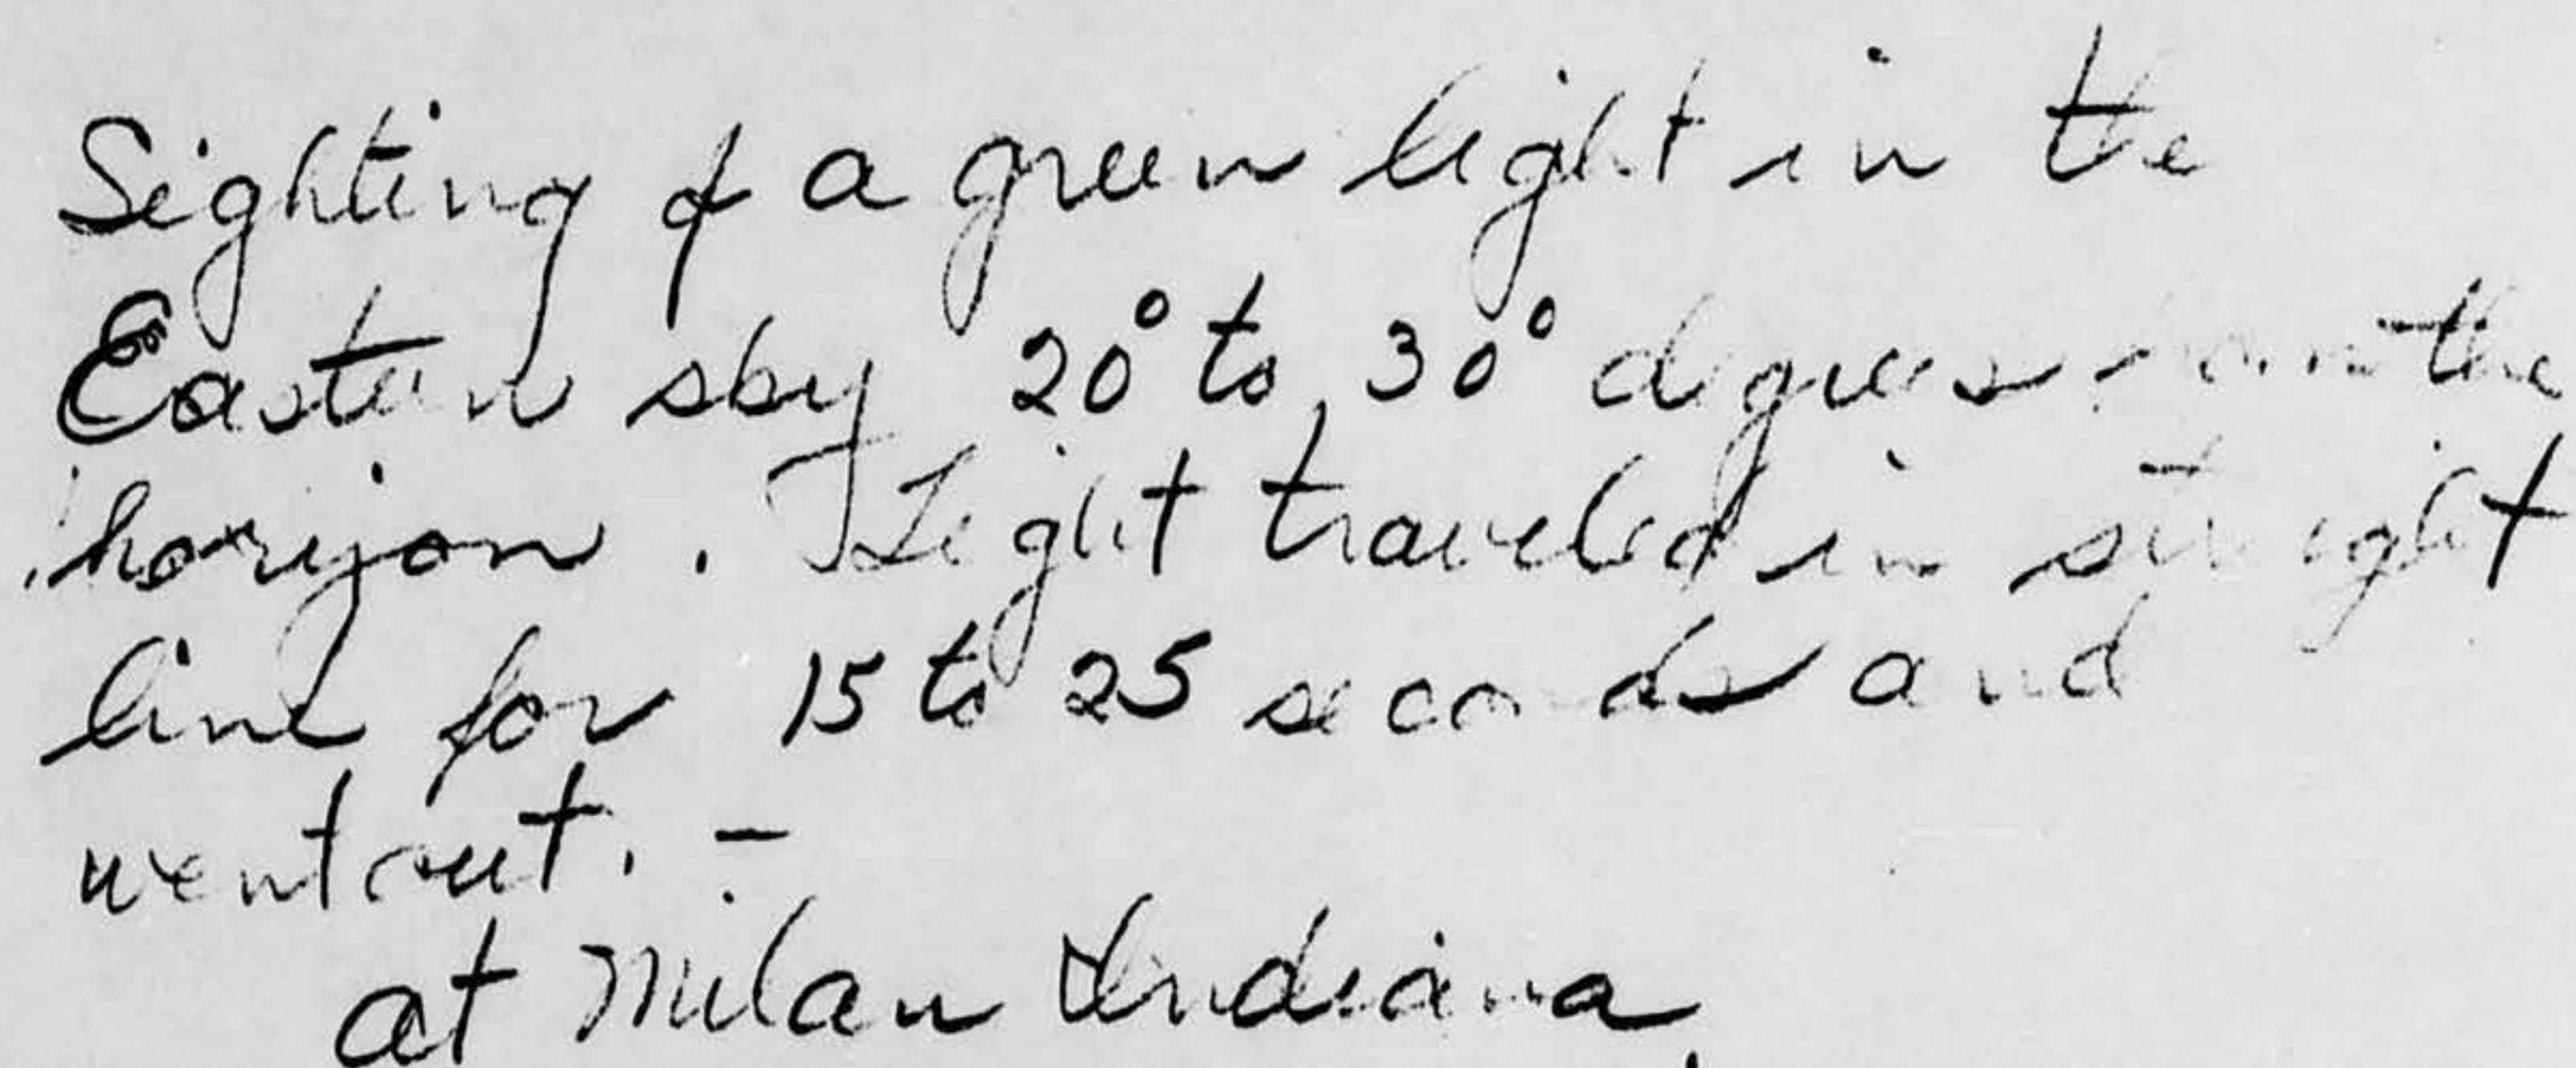 Sighting of a green light in the
Eastern sky 20° to 30° degrees from the
horizon. Light traveled in straight
line for 15 to 25 seconds and
went out. -
at Milan Indiana.